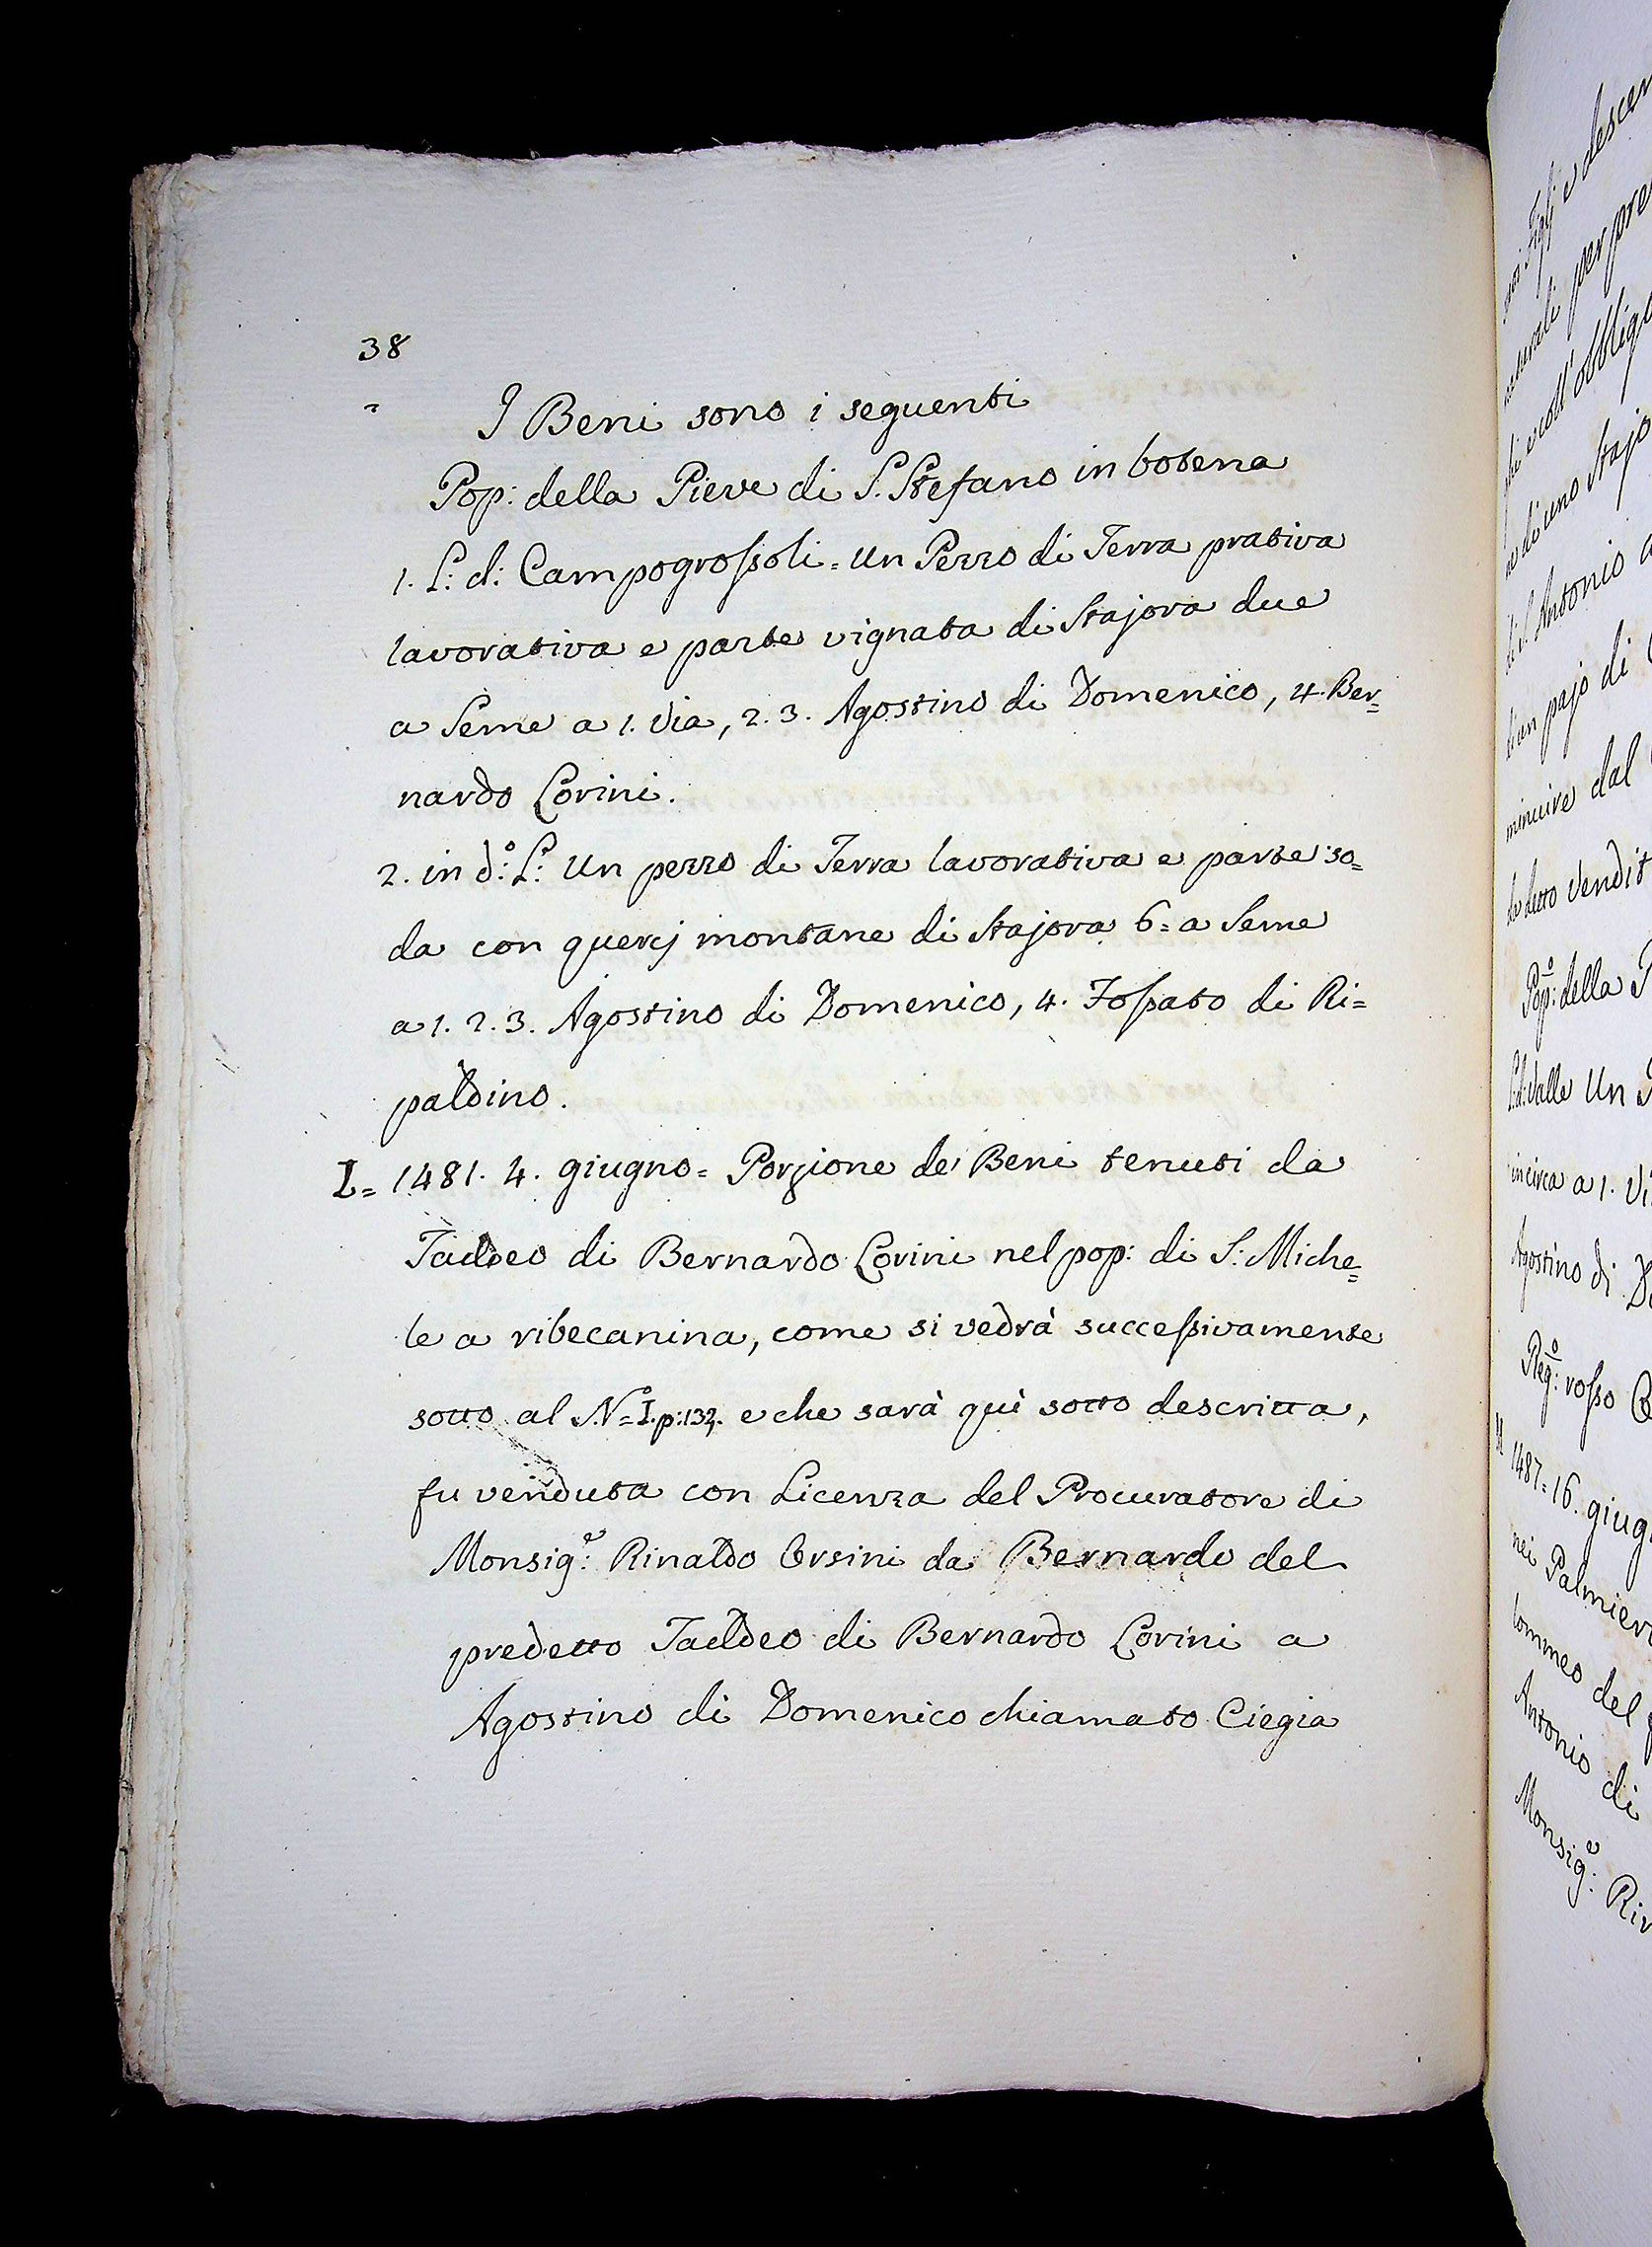 38
I Beni sono i seguenti
Pop: della Pieve di S. Stefano in botena
1. L: d: Campogroſsoli = Un Pezzo di Terra prativa
lavorativa e parte vignata di Stajora due
a Seme a 1. Via, 2. 3. Agostino di Domenico, 4. Ber=
nardo Corini.
2. in d.º: L.º: Un pezzo di Terra lavorativa e parte so=
da con quercj montane di Stajora 6 = a Seme
a 1. 2. 3. Agostino di Domenico, 4. Foſsato di Ri=
paldino.
I = 1481. 4. giugno = Porzione de' Beni tenuti da
Taddeo di Bernardo Corini nel pop: di S: Miche=
le a ribecanina, come si vedrà succeſsivamente
sotto al N.º = I. p: 132. e che sarà quì sotto descritta,
fu venduta con Licenza del Procuratore di
Monsig.e: Rinaldo Orsini da Bernardo del
predetto Taddeo di Bernardo Corini a
Agostino di Domenico chiamato Ciegia
suoi Figlj e descen
naturali per pre
coll'obbligo
di uno Stajo
di S. Antonio a
un pajo di
minuire dal
detto Vendit
Pop.º: della P
L: d: Valle Un P
in circa a 1. Vi
Agostino di Do
Reg.º: roſso
1487 = 16. giug
nei Palmieri
tommeo del
Antonio di
Monsig.e: Rin